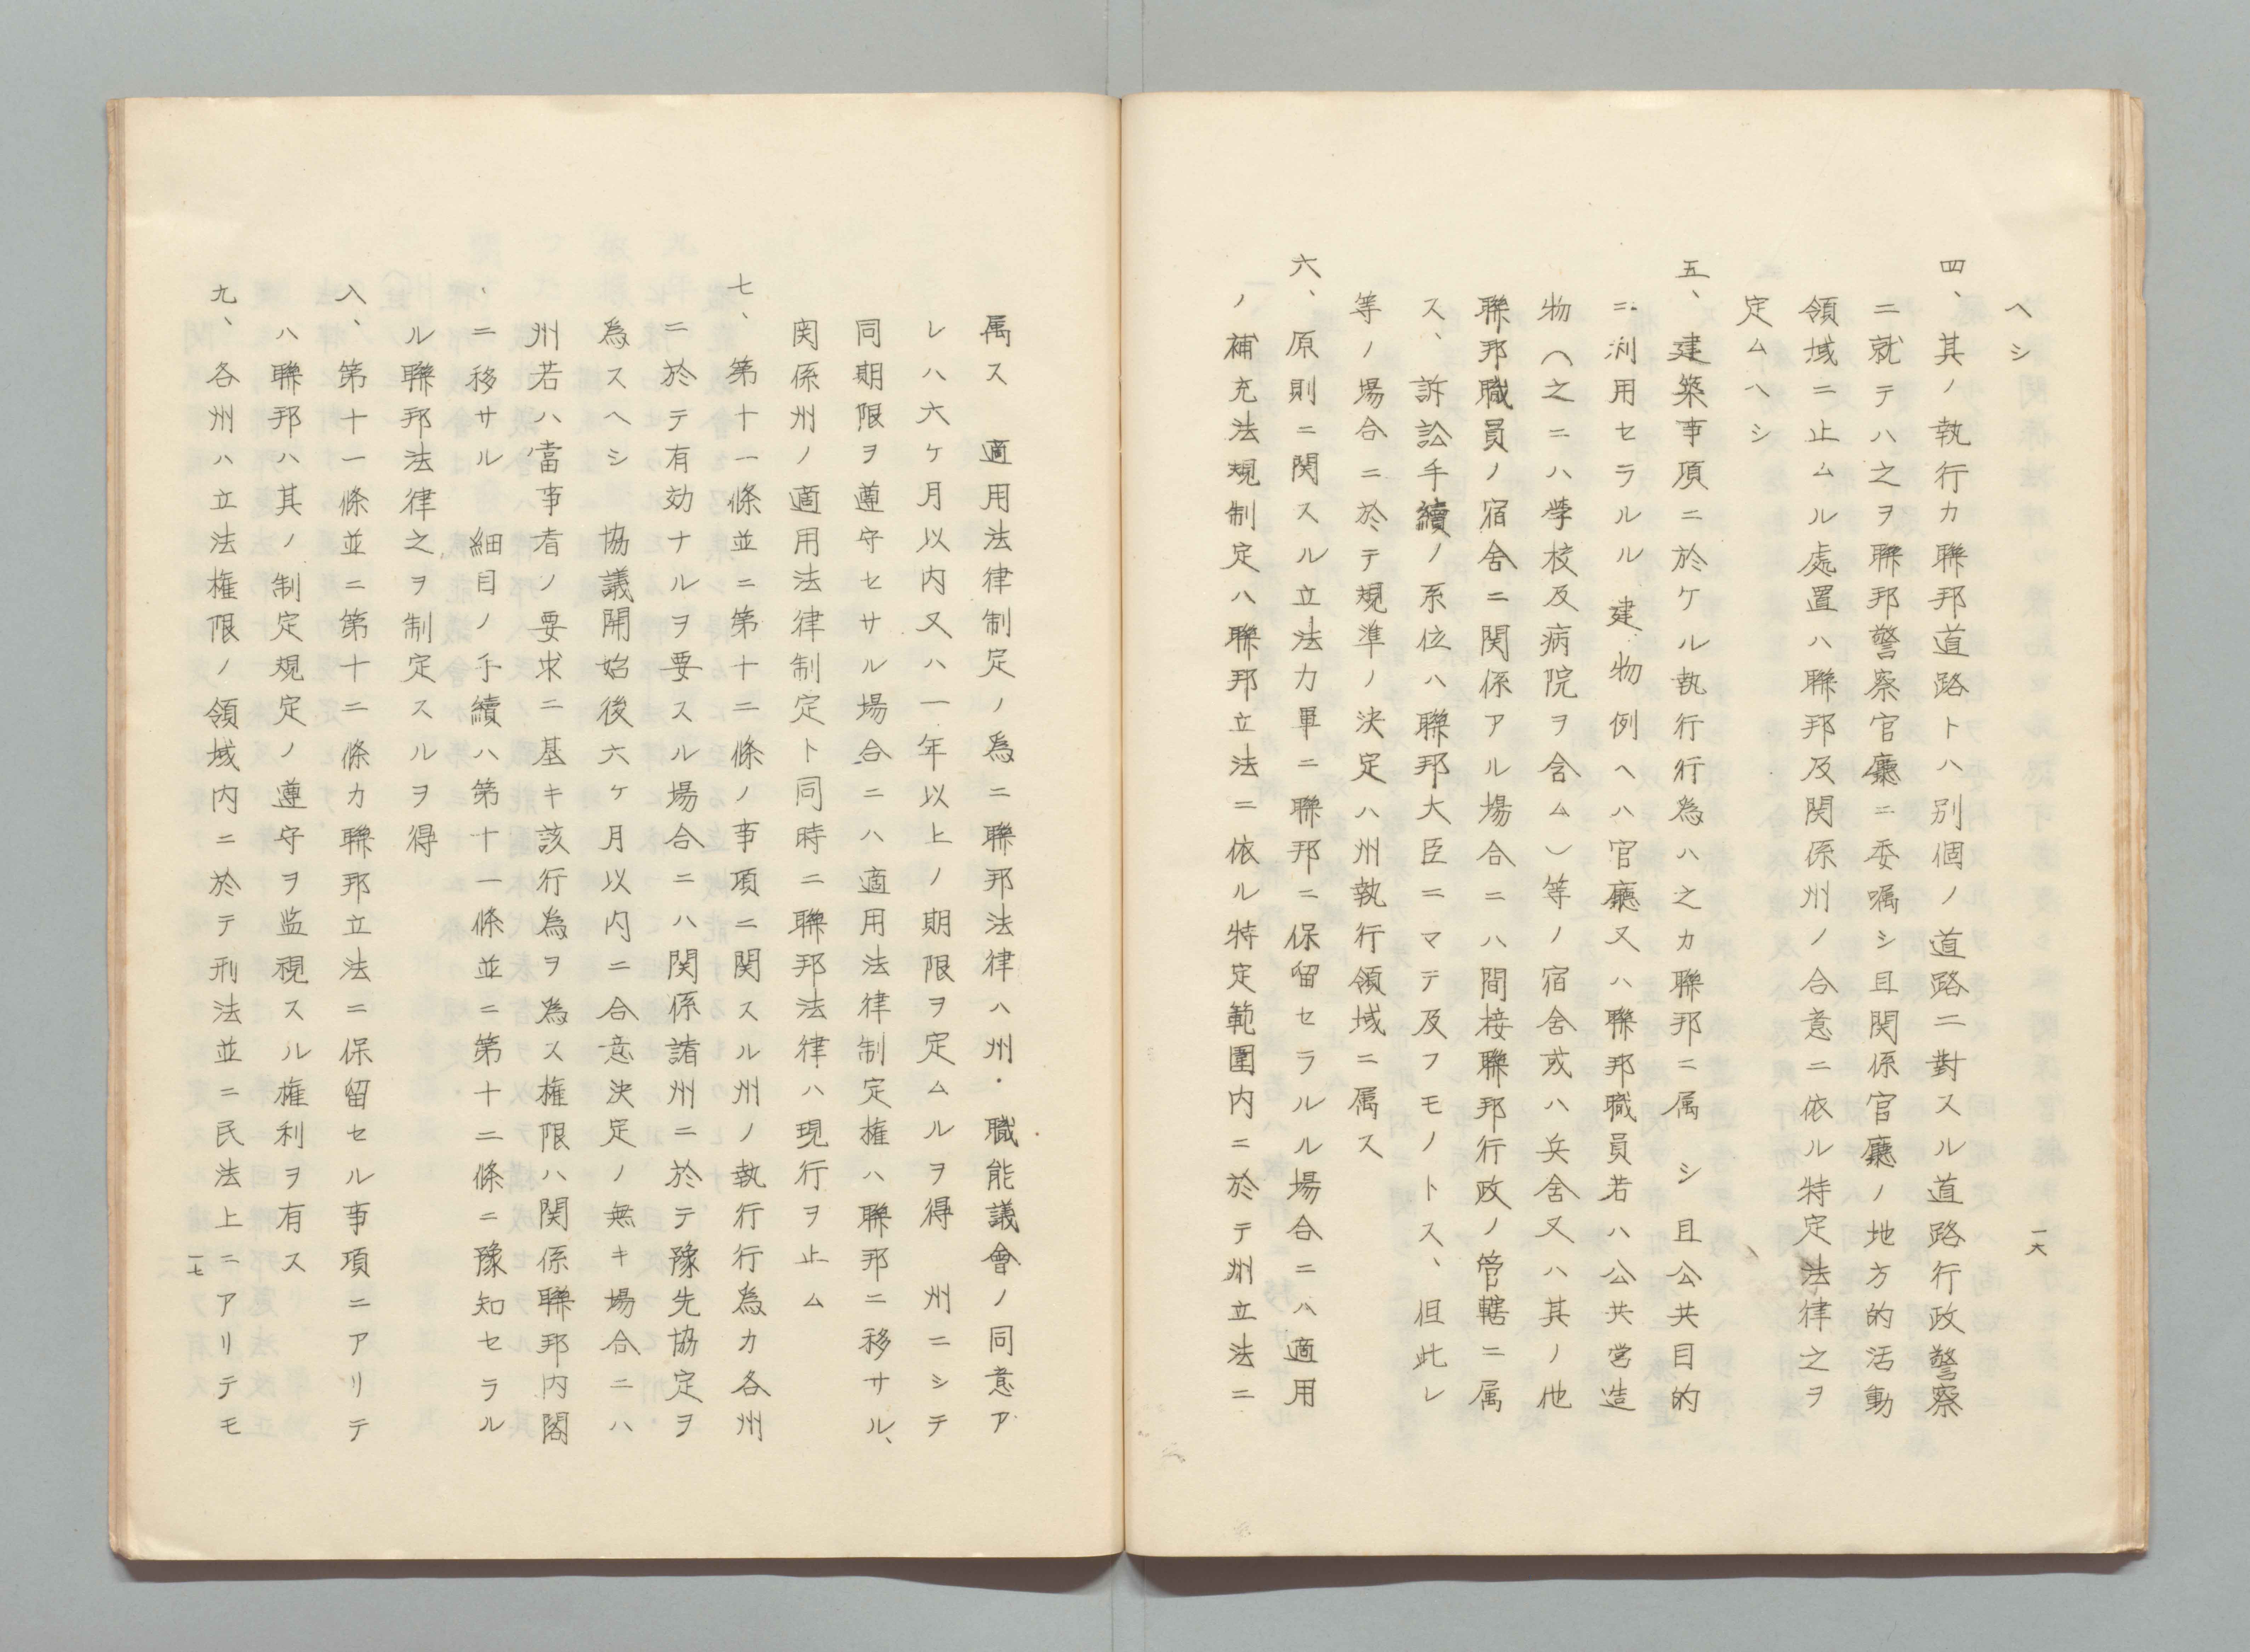 ヘシ
四、其ノ執行カ聯邦道路トハ別個ノ道路ニ對スル道路行政警察
ニ就テハ之ヲ聯邦警察官廳ニ委嘱シ且関係官廳ノ地方的活動
領域ニ止ムル處置ハ聯邦及関係州ノ合意ニ依ル特定法律之ヲ
定ムヘシ
五、建築事項ニ於ケル執行行為ハ之カ聯邦ニ属シ且公共目的
ニ利用セラルル建物例ヘハ官廳又ハ聯邦職員若ハ公共営造
物(之ニハ学校及病院ヲ含ム)等ノ宿舎或ハ兵舎又ハ其ノ他
聯邦職員ノ宿舎ニ関係アル場合ニハ間接聯邦行政ノ管轄ニ属
ス、訴訟手續ノ系位ハ聯邦大臣ニマテ及フモノトス、但此レ
等ノ場合ニ於テ規準ノ決定ハ州執行領域ニ属ス
六、原則ニ関スル立法カ單ニ聯邦ニ保留セラルル場合ニハ適用
ノ補充法規制定ハ聯邦立法ニ依ル特定範圍内ニ於テ州立法ニ
一六
属ス 適用法律制定ノ為ニ聯邦法律ハ州・職能議會ノ同意ア
レハ六ケ月以内又ハ一年以上ノ期限ヲ定ムルヲ得 州ニシテ
同期限ヲ遵守セサル場合ニハ適用法律制定権ハ聯邦ニ移サル、
関係州ノ適用法律制定ト同時ニ聯邦法律ハ現行ヲ止ム
七、第十一條並ニ第十二條ノ事項ニ関スル州ノ執行行為カ各州
ニ於テ有効ナルヲ要スル場合ニハ関係諸州ニ於テ豫先協定ヲ
為スヘシ 協議開始後六ケ月以内ニ合意決定ノ無キ場合ニハ
州若ハ當事者ノ要求ニ基キ該行為ヲ為ス権限ハ関係聯邦内閣
ニ移サル 細目ノ手續ハ第十一條並ニ第十二條ニ豫知セラル
ル聯邦法律之ヲ制定スルヲ得
八、第十一條並ニ第十二條カ聯邦立法ニ保留セル事項ニアリテ
ハ聯邦ハ其ノ制定規定ノ遵守ヲ监視スル権利ヲ有ス
九、各州ハ立法権限ノ領域内ニ於テ刑法並ニ民法上ニアリテモ
一七